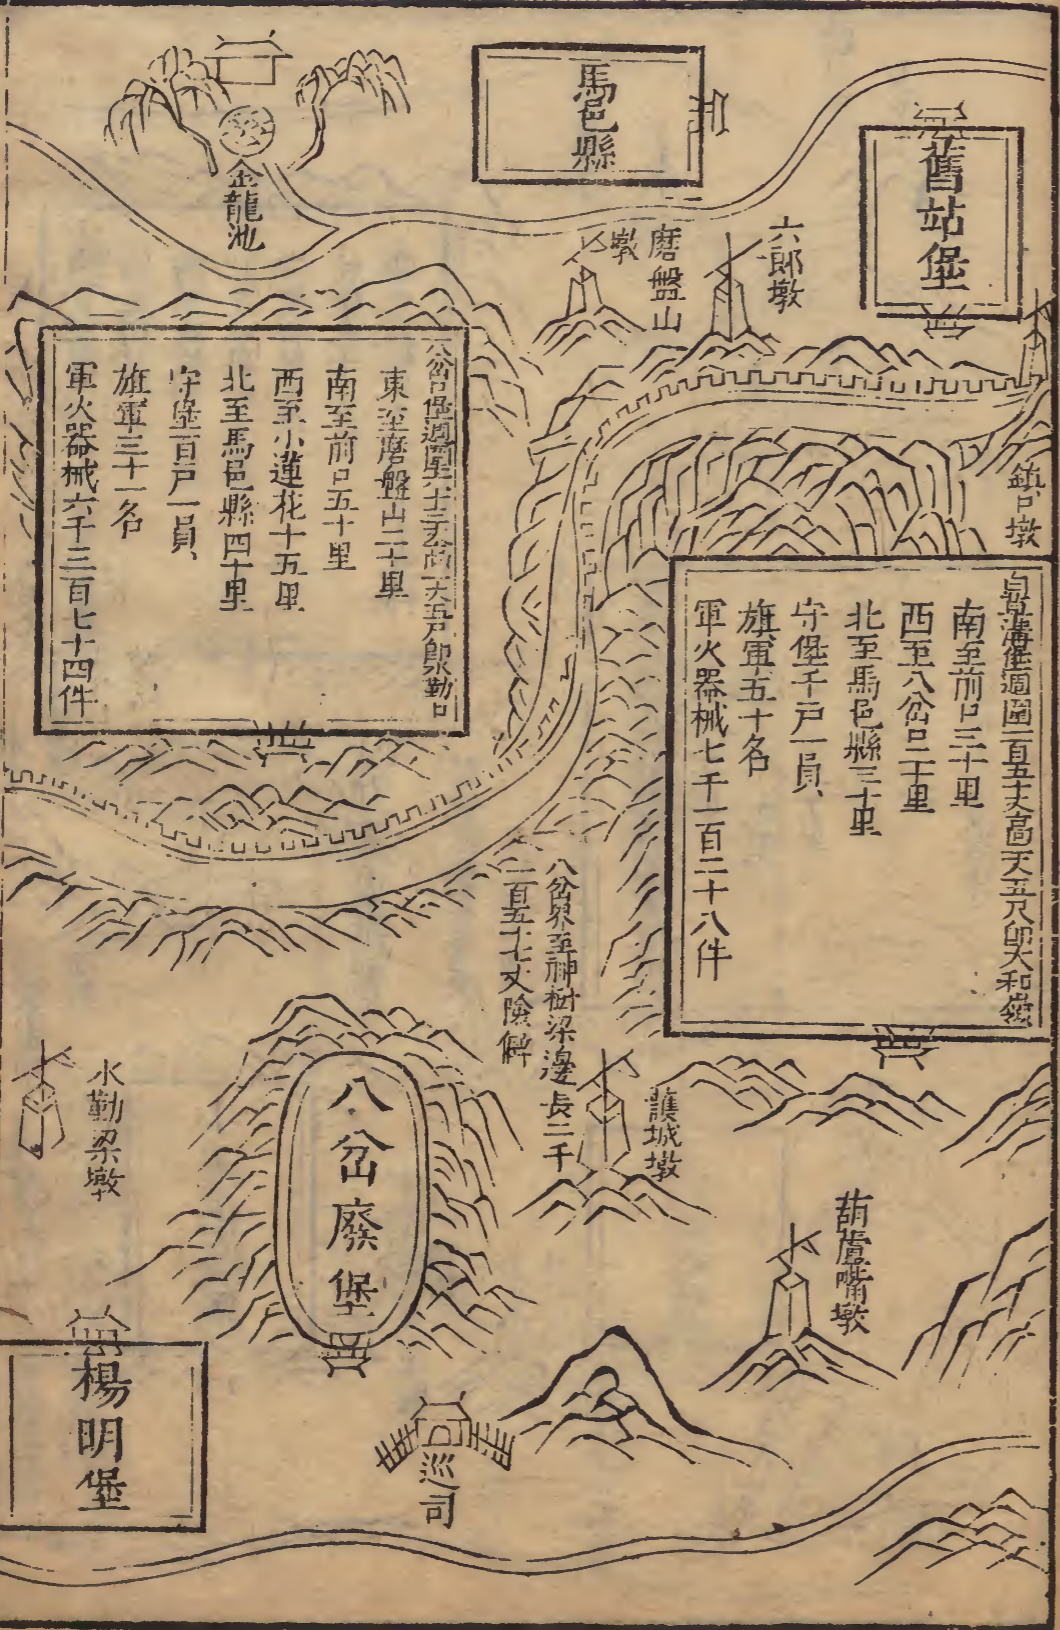 舊站堡
馬邑縣
金龍池
六郎墩
磨盤山
墩
鎮口墩
白草溝堡週圍一百五十丈高一丈五尺卽太和嶺
南至前口三十里
西至八岔口二十里
北至馬邑縣三十里
守堡千戶一員
旗軍五十名
軍火器械七千一百二十八件
東至磨盤山二十里
南至前口五十里
西至小蓮花十五里
北至馬邑縣四十里
守堡百戶一員
旗軍三十一名
軍火器械六千三百七十四件
八岔界至神樹梁邊長二千
二百五十七丈險僻
護城墩
葫蘆嘴墩
八岔廢堡
水勤梁墩
巡司
楊明堡